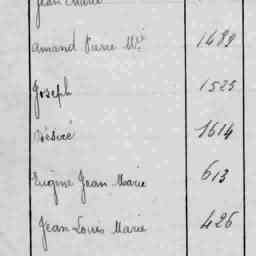 Jean Marie
Amand Pierre Mie 1489
Joseph 1525
Désiré 1614
Eugène Jean Marie 613
Jean Louis Marie 426